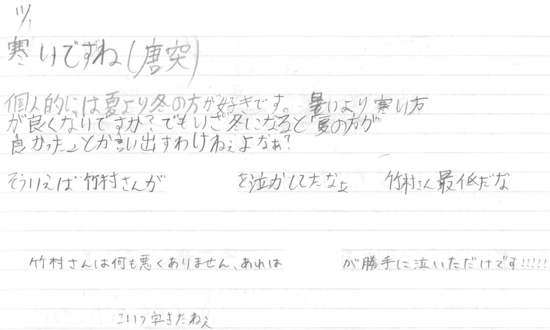 11/1
寒いですね(唐突)
個人的には夏より冬の方が好きです。暑いより寒い方
が良くないですか?でもいざ冬になると"夏の方が
良かった"とか言い出すわけねぇよなぁ?
そういえば竹村さんが を泣かしてたなぁ 竹村さん最低だな
竹村さんは何も悪くありません、あれは が勝手に泣いただけです!!!!!
こいつ字きたねぇ